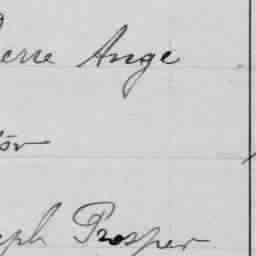 ierre Ange
ör
eph Prosper